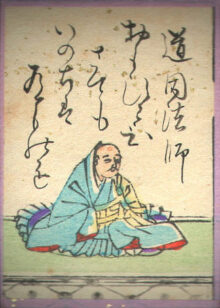 道因法師
おもひわひ
さても
いのちは
あるものを